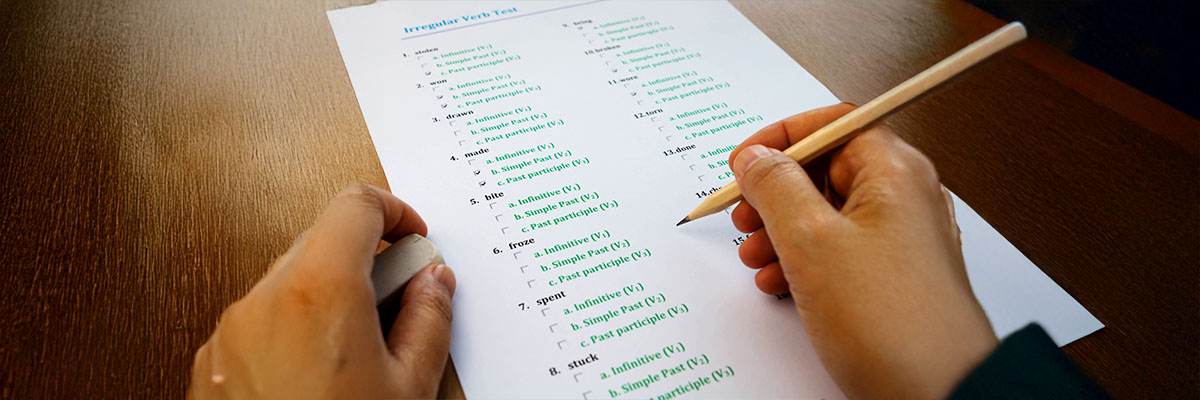 Irregular Verb Test
1. stolen
a. Infinitive (V₁)
b. Simple Past (V₂)
c. Past participle (V₃)
2. won
a. Infinitive (V₁)
b. Simple Past (V₂)
c. Past participle (V₃)
3. drawn
a. Infinitive (V₁)
b. Simple Past (V₂)
c. Past participle (V₃)
4. made
a. Infinitive (V₁)
b. Simple Past (V₂)
c. Past participle (V₃)
5. bite
a. Infinitive (V₁)
b. Simple Past (V₂)
c. Past participle (V₃)
6. froze
a. Infinitive (V₁)
b. Simple Past (V₂)
c. Past participle (V₃)
7. spent
a. Infinitive (V₁)
b. Simple Past (V₂)
c. Past participle (V₃)
8. stuck
a. Infinitive (V₁)
b. Simple Past (V₂)
Past participle (V₃)
9. bring
a. Infinitive (V₁)
b. Simple Past (V₂)
c. Past participle (V₃)
10.broken
a. Infinitive (V₁)
b. Simple Past (V₂)
c. Past participle (V₃)
11.wore
a. Infinitive (V₁)
b. Simple Past (V₂)
c. Past participle (V₃)
12.torn
a. Infinitive (V₁)
b. Simple Past (V₂)
c. Past participle (V₃)
13.done
a.
b.
c.
14.
15